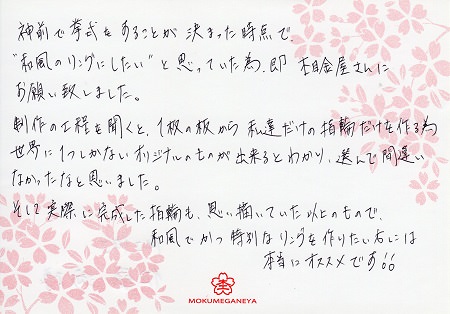 神前で挙式をあることが決まった時点で、
"和風のリングにしたい"と思っていた為、即 杢目金屋さんに
お願い致しました。
制作の工程を聞くと、1枚の板から私達だけの指輪だけを作る為
世界に1つしかないオリジナルのものが出来るとわかり、選んで間違い
なかったなと思いました。
そして実際に完成した指輪も、思い描いていた以上のもので、
和風でかつ特別なリングを作りたい方には
本当にオススメです!!
MOKUMEGANEYA